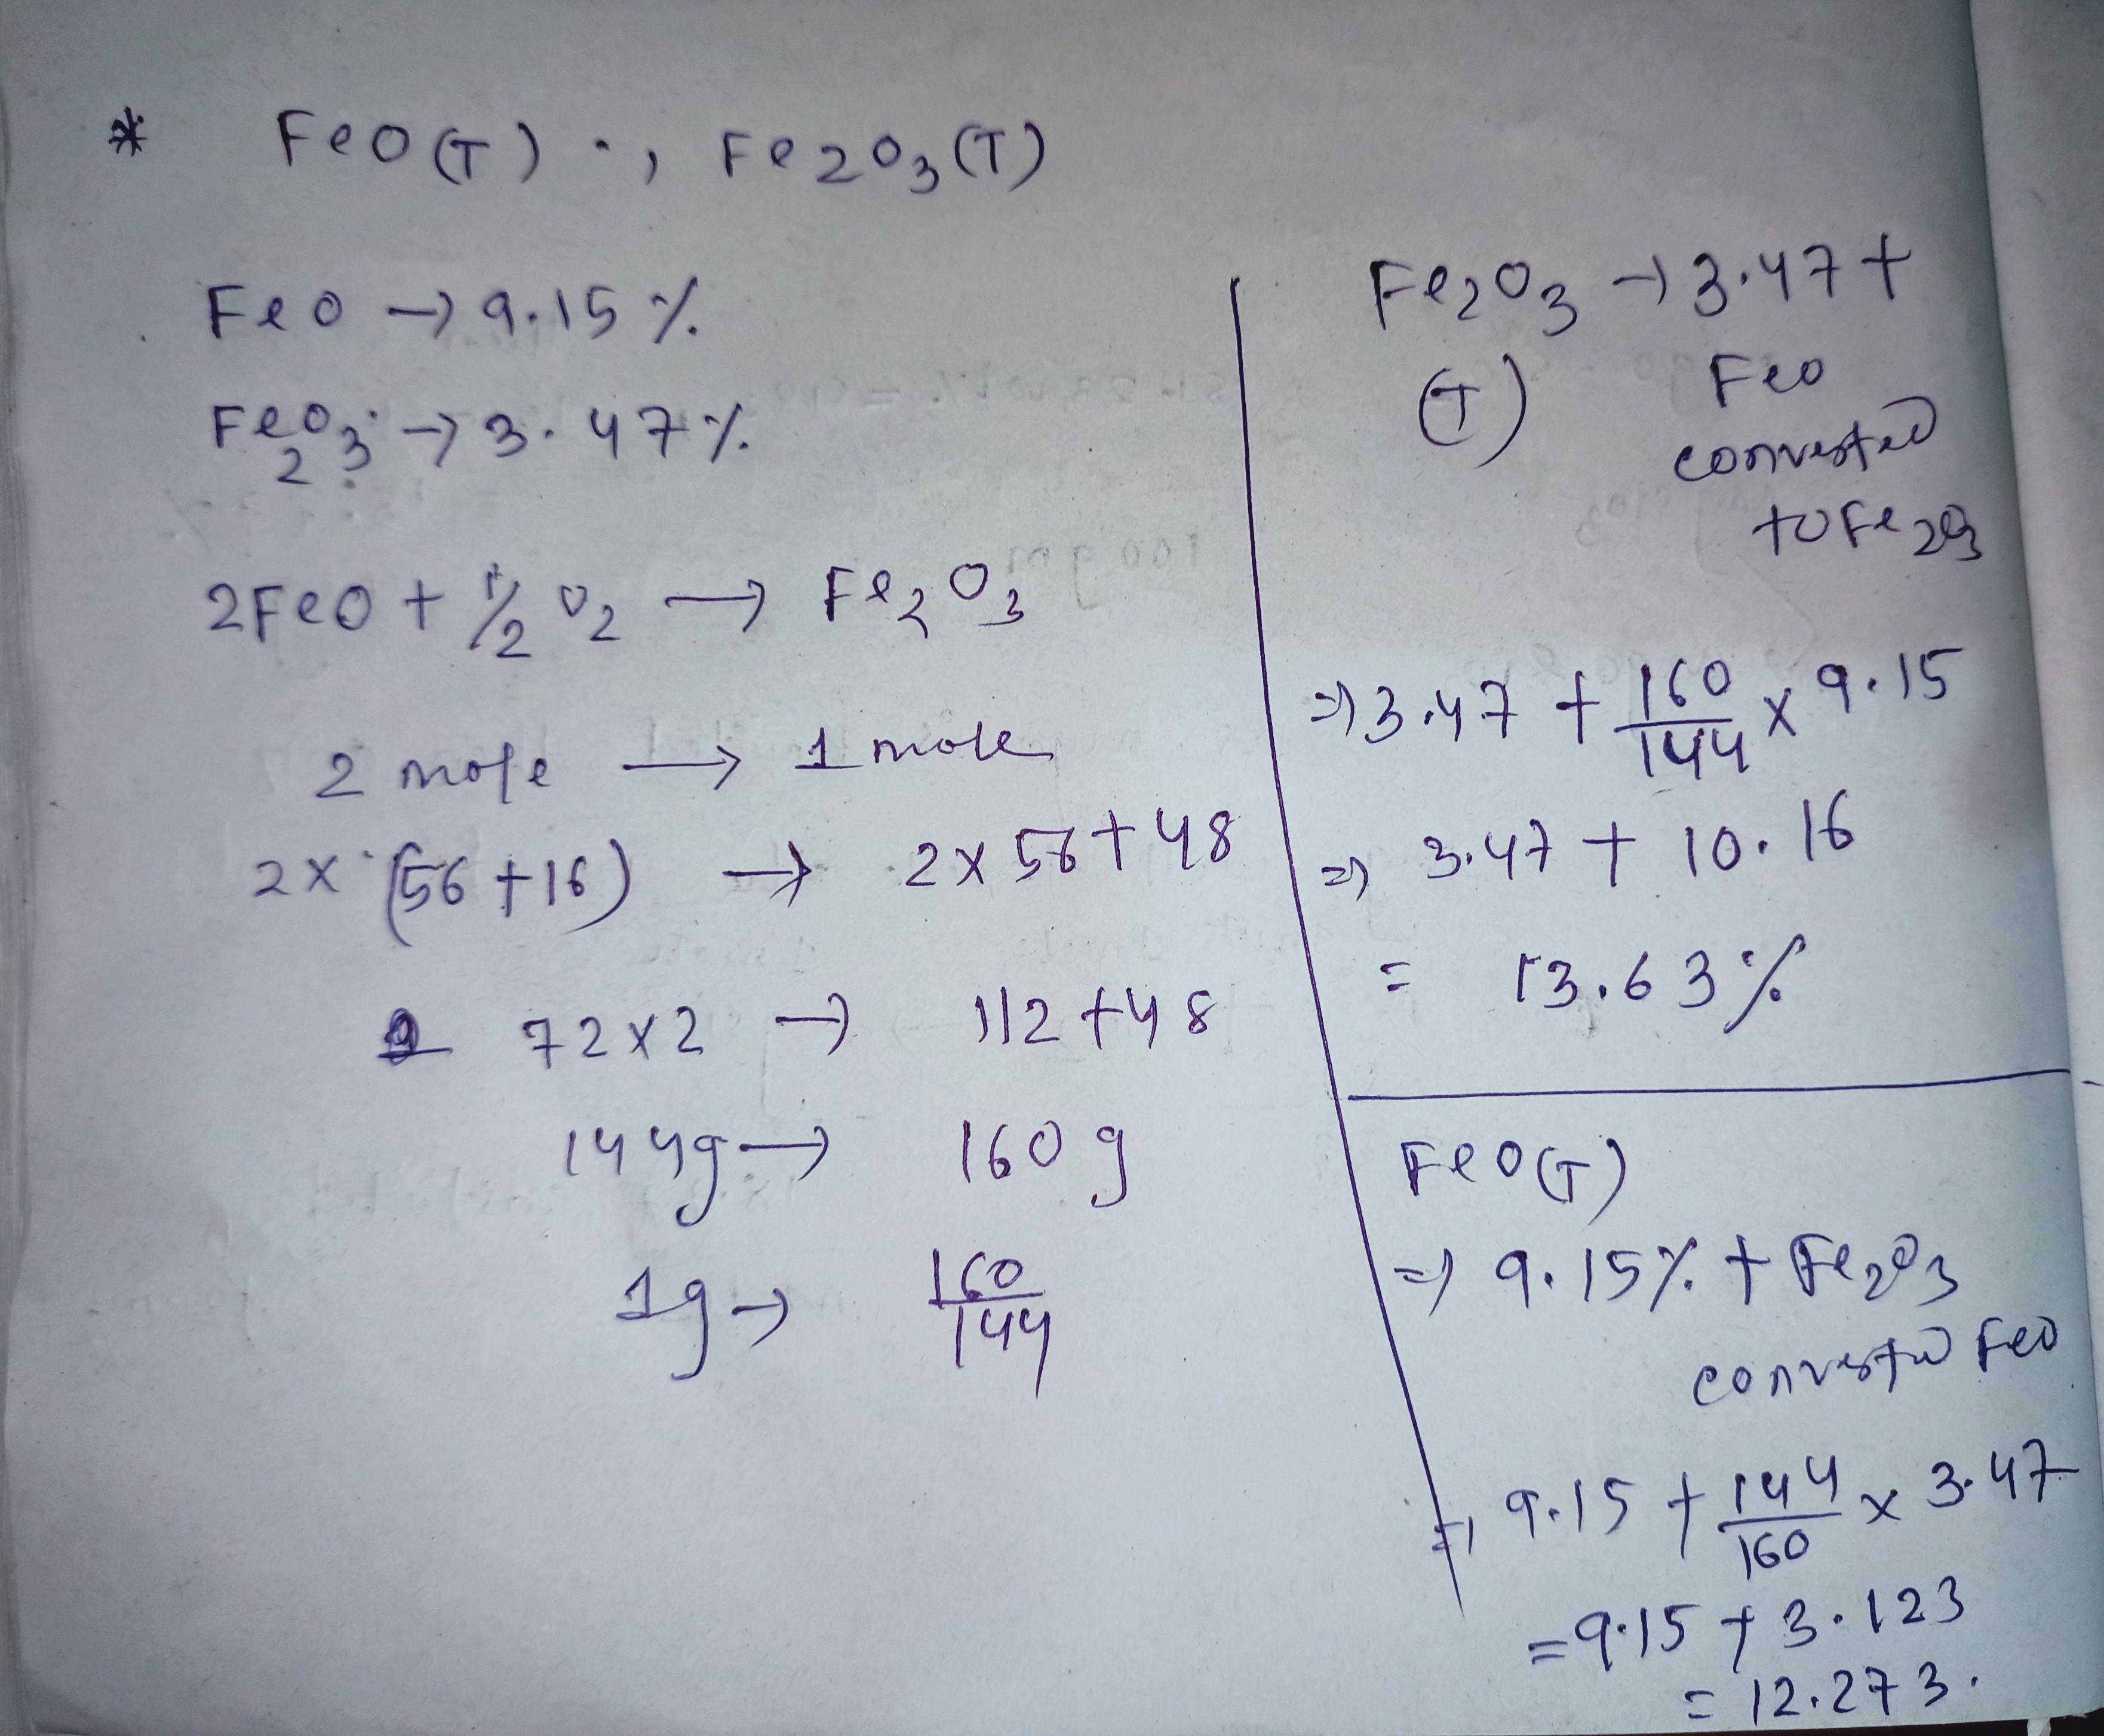 * FeO(T) ., Fe2O3(T)
FeO → 9.15 %
Fe2O3 → 3.47%
2FeO + 1/2 O2 → Fe2O3
2 mole → 1 mole
2x (56 +16) → 2x56+48
72x2 → 112+48
144g → 160g
1g → 160/144
Fe2O3 → 3.47 +
(T) FeO
converted
to Fe2O3
=> 3.47 + 160/144 x 9.15
=> 3.47 + 10.16
= 13.63%
FeO(T)
=> 9.15% + Fe2O3
converted FeO
=> 9.15 + 144/160 x 3.47
= 9.15 + 3.123
= 12.273.